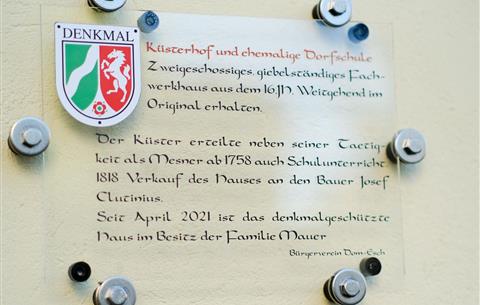 DENKMAL
Küsterhof und ehemalige Dorfschule
Zweigeschossiges, giebelständiges Fach-
werkhaus aus dem 16.Jh. Weitgehend im
Original erhalten.
Der Küster erteilte neben seiner Taetig-
keit als Mesner ab 1758 auch Schulunterricht
1818 Verkauf des Hauses an den Bauer Josef
Clutinius.
Seit April 2021 ist das denkmalgeschützte
Haus im Besitz der Familie Mauer
Bürgerverein Dom-Esch